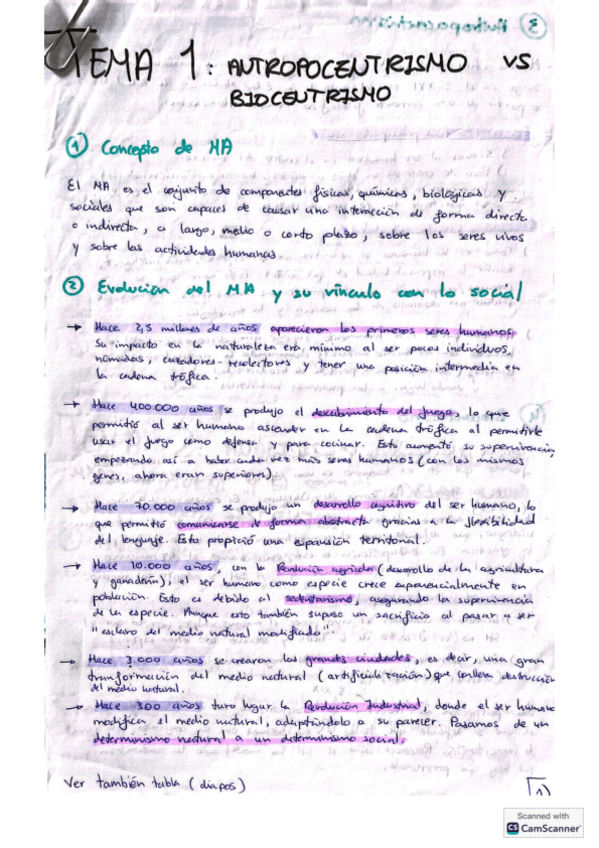 TEMA 1: ANTROPOCENTRISMO VS
BIOCENTRISMO
① Concepto de MA
El MA es el conjunto de componentes físicos, químicos, biológicos y
sociales que son capaces de causar una interacción de forma directa
o indirecta, a largo, medio o corto plazo, sobre los seres vivos
y sobre las actividades humanas.
② Evolución del MA y su vínculo con lo social
→ Hace 2,5 millones de años aparecieron los primeros seres humanos.
Su impacto en la naturaleza era mínimo al ser pocos individuos,
nómadas, cazadores-recolectores y tener una posición intermedia en
la cadena trófica.
→ Hace 400.000 años se produjo el descubrimiento del fuego, lo que
permitió al ser humano ascender en la cadena trófica al permitirle
usar el fuego como defensa y para cocinar. Esto aumentó su supervivencia,
empezando así a haber cada vez más seres humanos (con los mismos
genes, ahora eran superiores).
→ Hace 70.000 años se produjo un desarrollo cognitivo del ser humano, lo
que permitió comunicarse de forma abstracta gracias a la flexibilidad
del lenguaje. Esto propició una expansión territorial.
→ Hace 10.000 años, con la Revolución agrícola (desarrollo de la agricultura
y ganadería), el ser humano como especie crece exponencialmente en
población. Esto es debido al sedentarismo, asegurando la supervivencia
de la especie. Aunque esto también supuso un sacrificio al pasar a ser
"esclavo del medio natural modificado".
→ Hace 3.000 años se crearon las grandes ciudades, es decir, una gran
transformación del medio natural (artificialización) que conlleva destrucción
del medio natural.
→ Hace 300 años tuvo lugar la Revolución Industrial, donde el ser humano
modifica el medio natural, adaptándolo a su parecer. Pasamos de un
determinismo natural a un determinismo social.
Ver también tabla (diapos)
1)
Scanned with
CS CamScanner